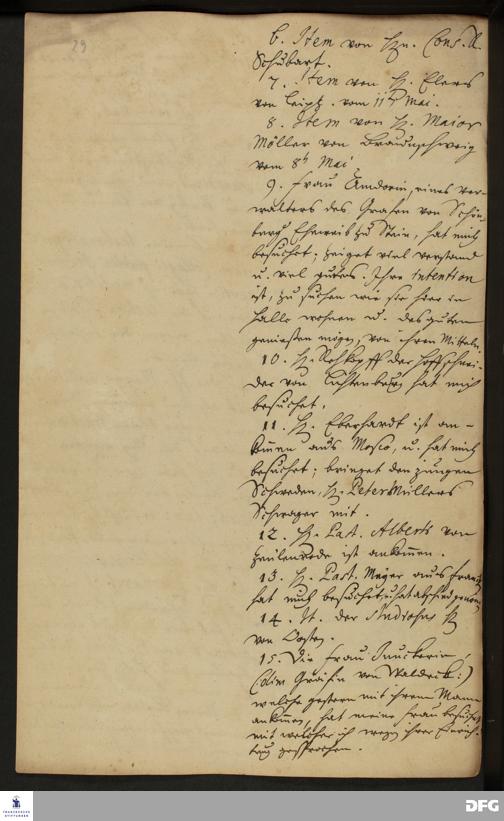 29
6. Item von Hn. Cons. R.
Schubart.
7. Item von H. Elers
von Leipz. vom 11t Mai.
8. Item von H. Maior
Möller von Braunschweig
vom 8t Mai
9. Frau Amdorin, eines ver-
walters des Grafen von Schön-
berg Eheweib zu Stein, hat mich
besuchet; zeiget viel verstand
u. viel gutes. Ihre intention
ist, zu suchen wie sie hier in
Halle wohnen u. des guten
genießen möge, von ihren Mitteln.
10. H. Rehkopff der Hoffschnei-
der von Lichtenburg hat mich
besuchet.
11. H. Eberhardt ist an-
kommen aus Mosco, u. hat mich
besuchet; bringet den jungen
Schweden, H. Peter Müllers
Schwager mit.
12. H. Past. Alberti von
Zeulenrode ist ankommen.
13. H. Past. Meyer aus
hat mich besuchet, u. hat abschied genom
14. It. der Studiosus H
von
15. Die Frau Junckerin,
(olim Gräfin von Waldeck:)
welche gestern mit ihrem Mann
ankommen, hat meine Frau besuchet
mit welcher ich wegen ihrer
gesprochen.
FRANCKESCHE STIFTUNGEN
DFG